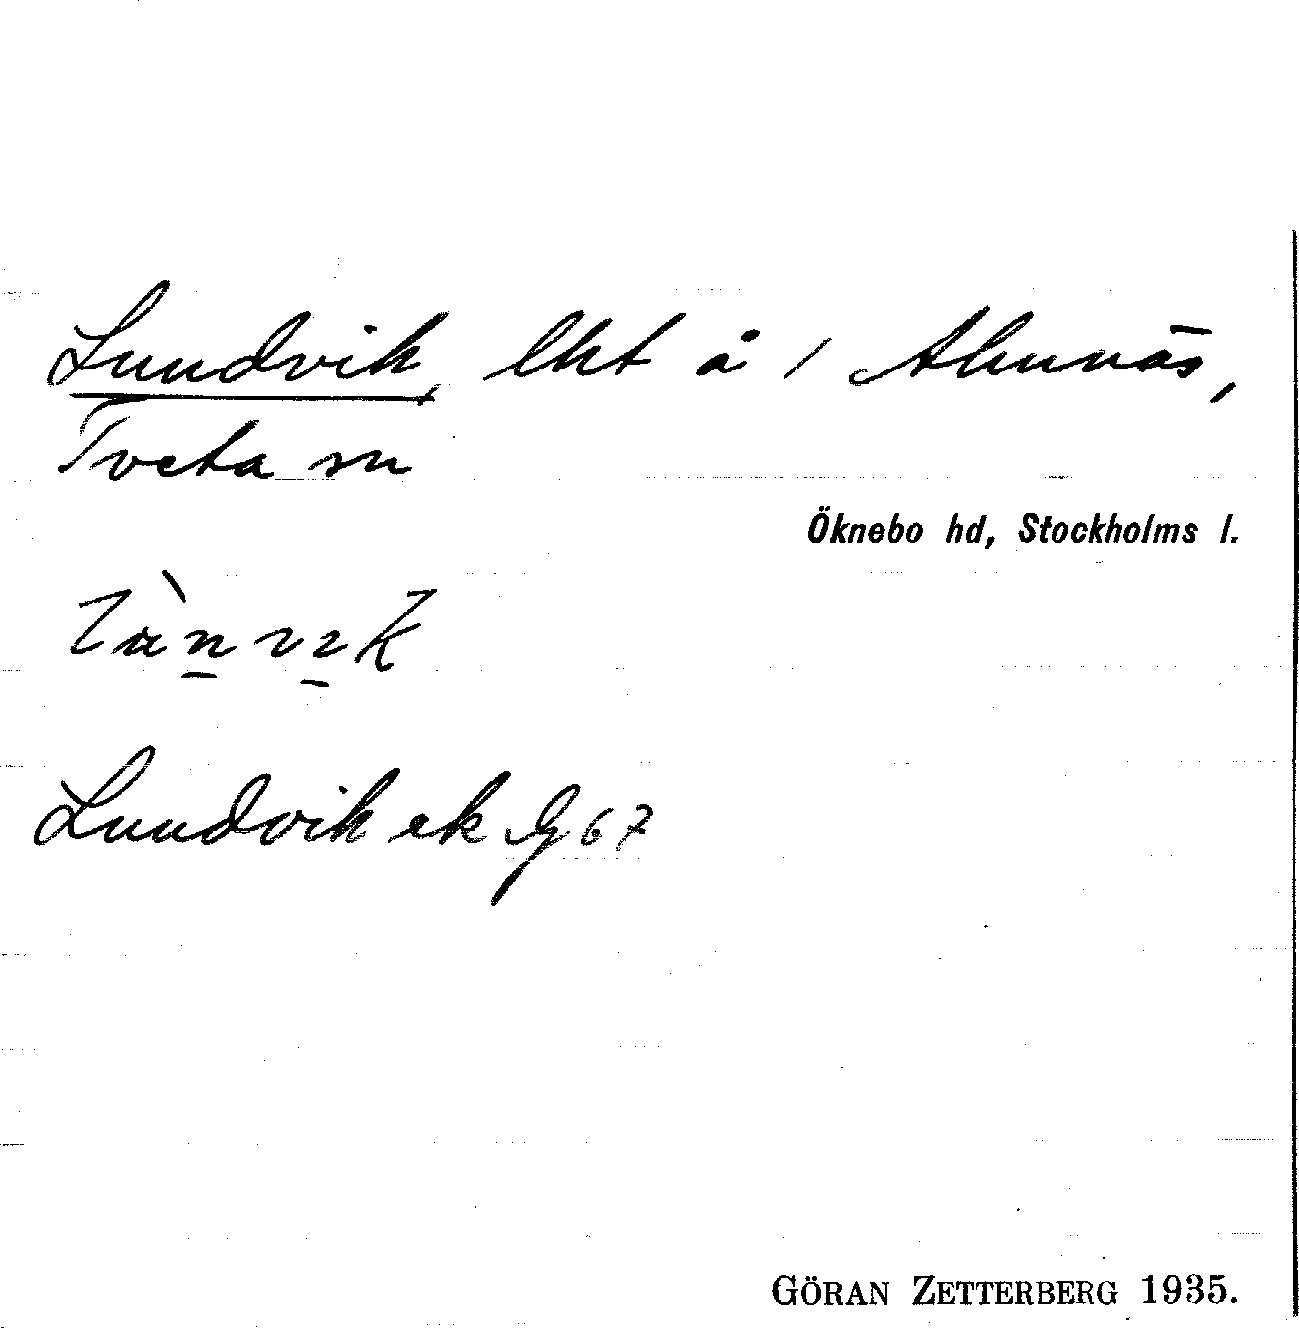 Lundvik, lht å 1 Almnäs,
Tveta sn
Öknebo hd, Stockholms l.
Lundvik ek G 67
GÖRAN ZETTERBERG 1935.